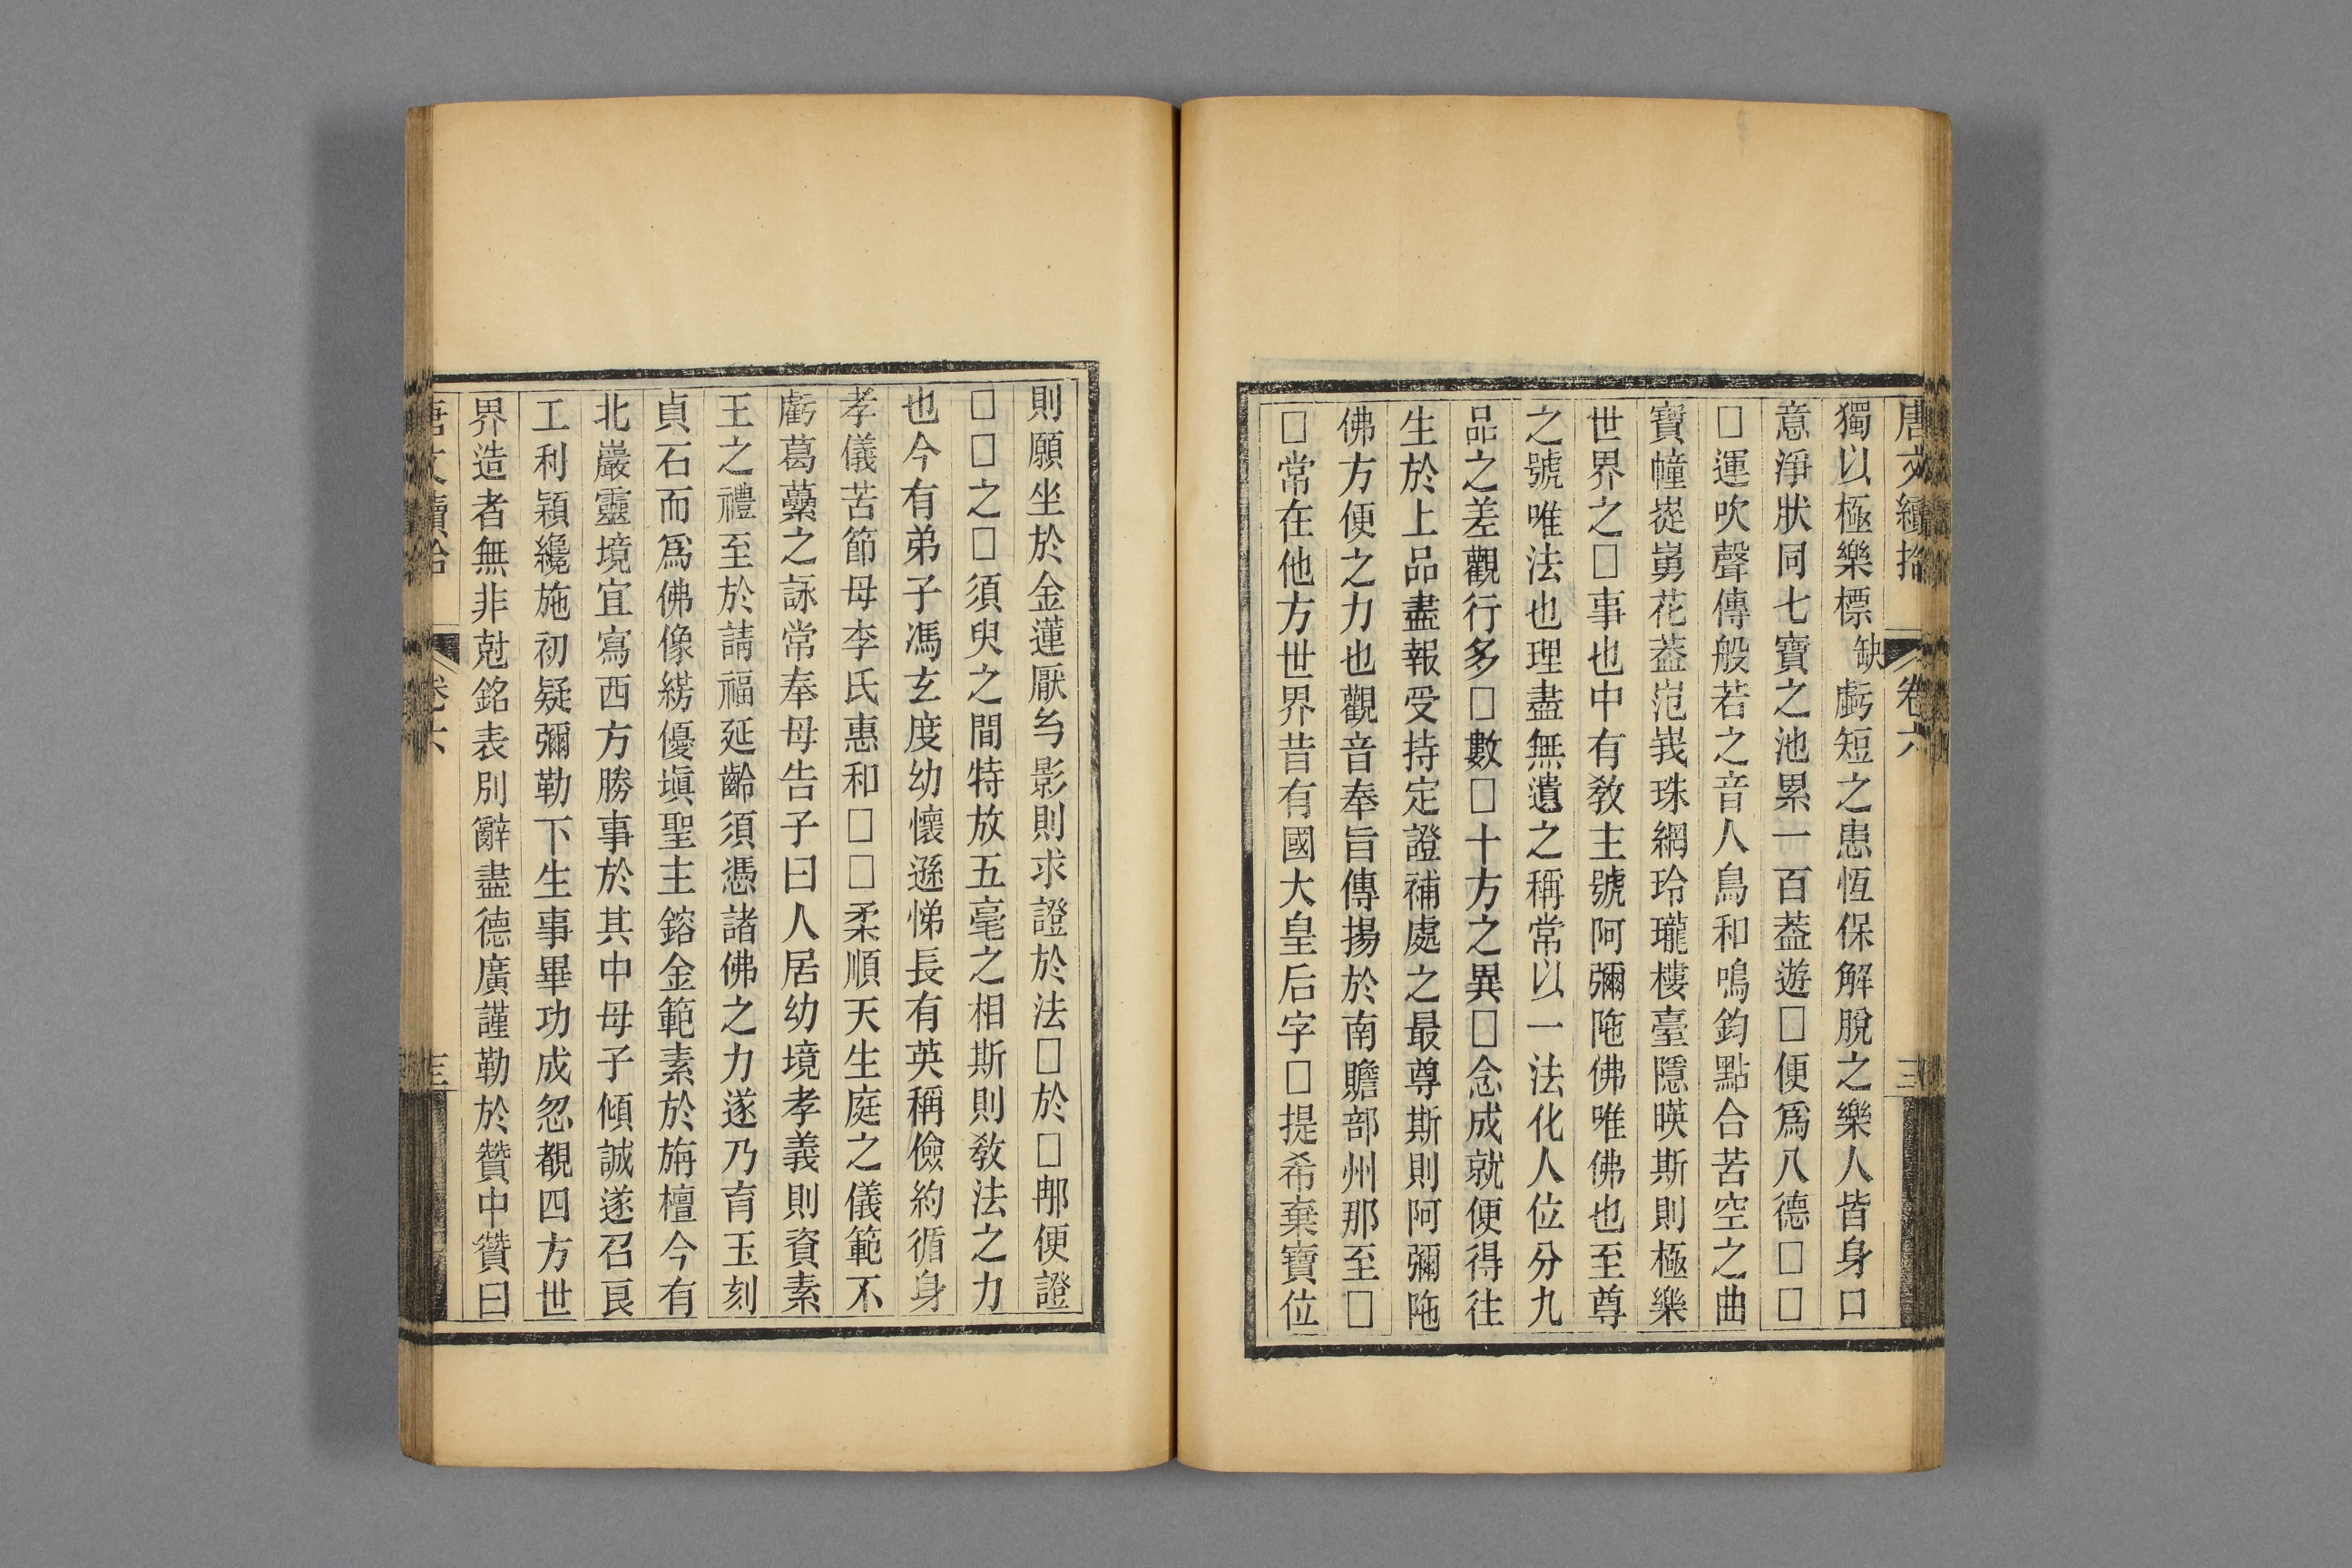 唐文續拾 卷六 三
獨以極樂標缺虧短之患恆保解脫之樂人皆身口
意淨狀同七寶之池累一百葢遊□便爲八德□□
□運吹聲傳般若之音人鳥和鳴鈞點合苦空之曲
寶幢嵸嵏花葢峞峩珠網玲瓏樓臺隱暎斯則極樂
世界之□事也中有敎主號阿彌陁佛唯佛也至尊
之號唯法也理盡無遺之稱常以一法化人位分九
品之差觀行多□數□十方之異□念成就便得往
生於上品盡報受持定證補處之最尊斯則阿彌陁
佛方便之力也觀音奉旨傳揚於南贍部州那至□
□常在他方世界昔有國大皇后字□提希棄寶位
則願坐於金蓮厭影則求證於法□於□冉便證
□□之□須臾之間特放五毫之相斯則敎法之力
也今有弟子馮玄度幼懷遜悌長有英稱儉約循身
孝儀苦節母李氏惠和□□柔順天生庭之儀範不
虧葛虆之詠常奉母告子曰人居幼境孝義則資素
王之禮至於請福延齡須憑諸佛之力遂乃育玉刻
貞石而爲佛像綉優塡聖主鎔金範素於旃檀今有
北巖靈境宜寫西方勝事於其中母子傾誠遂召良
工利穎纔施初疑彌勒下生事畢功成忽覩四方世
界造者無非尅銘表別辭盡德廣謹勒於贊中贊曰
唐文續拾 卷六 三